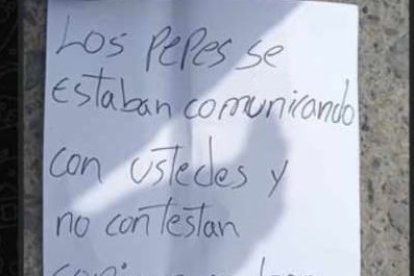 Los PEPES se
Estaban comunicando
con ustedes y
no contestan